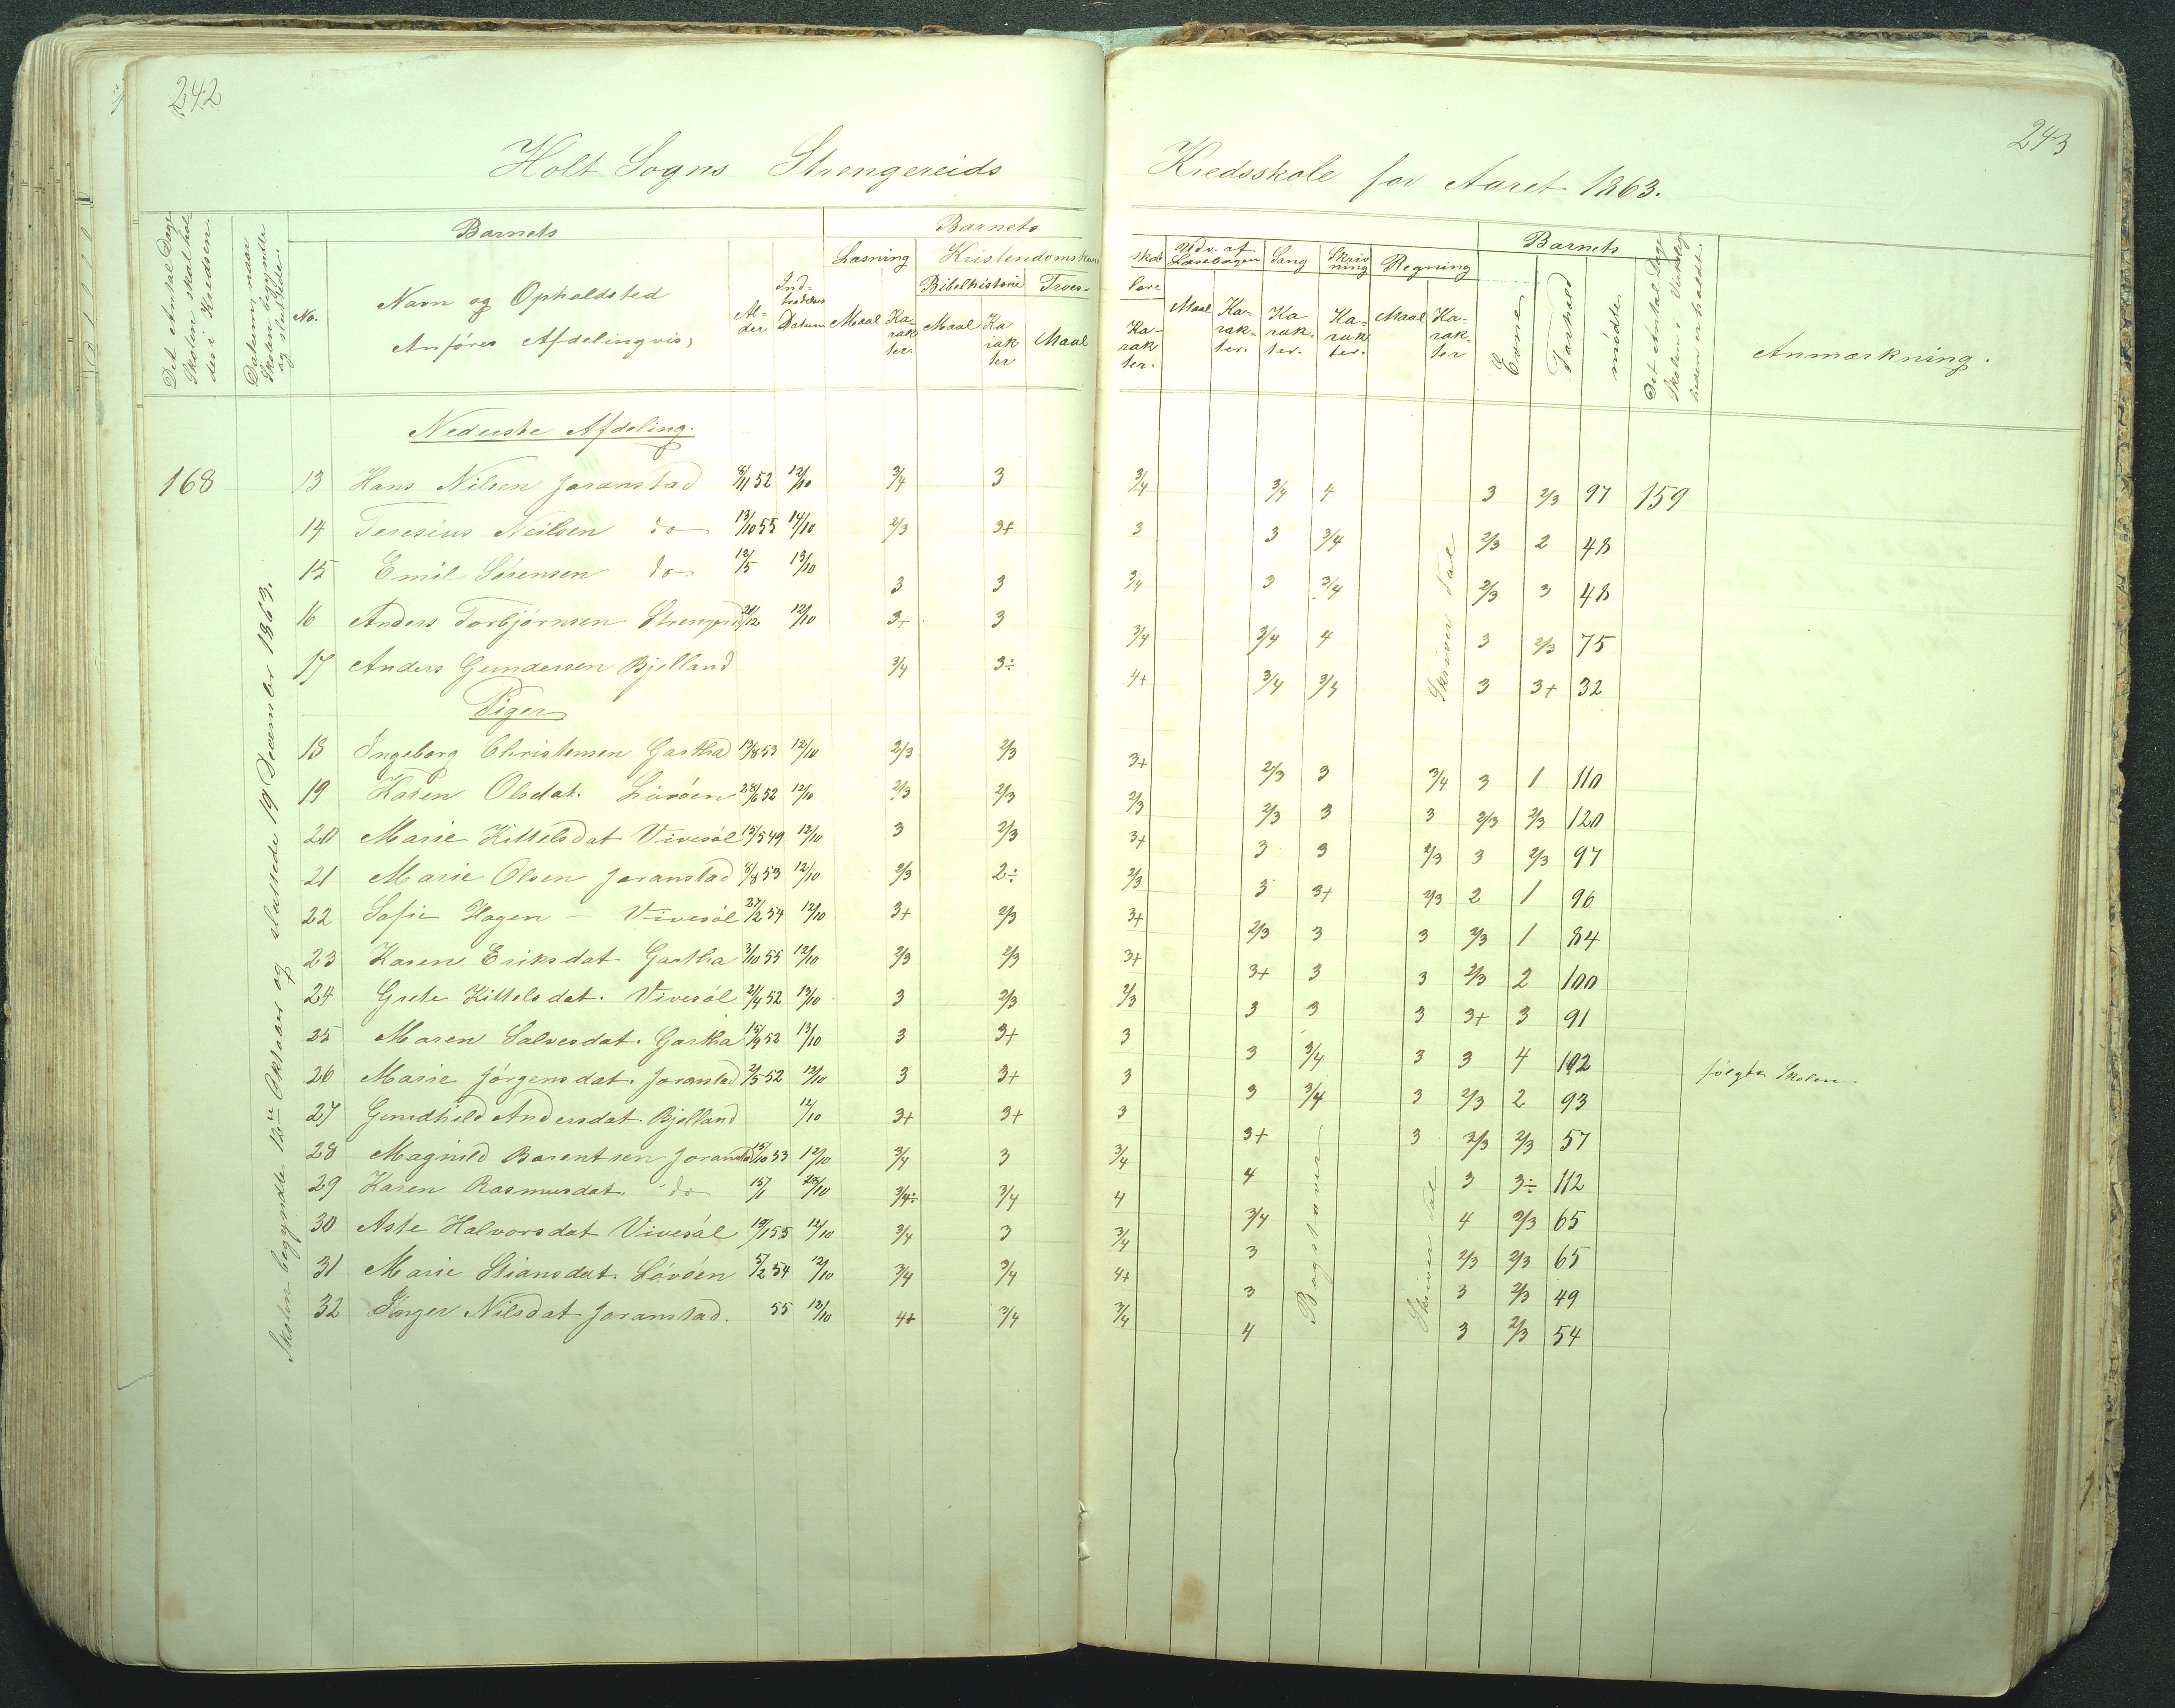 242
243
Holt Sogns Strengereids Kredsskole for Aaret 1863.
Det Antal Dage Skolen skal holdes i Kredsen.
Datum, naar Skolen begyndte og sluttede.
Barnets
No.
Navn og Opholdsted
Anføres Afdelingvis,
Alder
Indtrædelses Datum
Barnets
Læsning
Maal Karakter.
Kristendomskundskab
Bibelhistorie
Maal Karakter
Troeslære
Maal Karakter.
Udv. af Læsebogen
Maal Karakter.
Sang
Karakter.
Skrivning
Karakter.
Regning
Maal Karakter
Barnets
Evne
Forhold
mödte
Det Antal Dage Skolen i Virkeligheden er holdt.
Anmærkning.
Skolen begyndte 12te Oktober og sluttede 19 December 1863.
Nederste Afdeling.
168 13 Hans Nilsen Joranstad 8/11 52 12/10 3/4 3 3/4 3/4 4 3 2/3 97 159
14 Teresius Neilsen do 13/10 55 14/10 2/3 3+ 3 3 3/4 2/3 2 48
15 Emil Sørensen do 12/5 13/10 3 3 3/4 3 3/4 2/3 3 48
16 Anders Torbjørnsen 21/12 12/10 3+ 3 3/4 3/4 4 3 2/3 75
17 Anders Gundersen Bjelland 3/4 3÷ 4+ 3/4 3/4 3 3+ 32
Skriver Tal
Piger
18 Ingeborg Christensen Gartha 13/8 53 12/10 2/3 2/3 3+ 2/3 3 3/4 3 1 110
19 Karen Olsdat. Lövöen 28/6 52 12/10 2/3 2/3 2/3 2/3 3 3 2/3 2/3 120
20 Marie Kittelsdat Vivesöl 15/5 49 12/10 3 2/3 3+ 3 3 2/3 3 2/3 97
21 Marie Olsen Joranstad 8/8 53 12/10 2/3 2÷ 2/3 3 3+ 2/3 2 1 96
22 Sofie Hagen – Vivesöl 27/2 54 12/10 3+ 2/3 3+ 2/3 3 3 2/3 1 84
23 Karen Eriksdat Gartha 3/10 55 12/10 2/3 2/3 3+ 3+ 3 3 2/3 2 100
24 Grete Kittelsdat. Vivesöl 21/4 52 13/10 3 2/3 2/3 3 3 3 3+ 3 91
25 Maren Salvesdat. Gartha 15/9 52 13/10 3 3+ 3 3 3/4 3 3 4 102 følgte Skolen.
26 Marie Jörgensdat. Joranstad 2/5 52 12/10 3 3+ 3 3 3/4 3 2/3 2 93
27 Gundhild Andersdat. Bjelland 12/10 3+ 3+ 3 3+ 3 2/3 2/3 57
28 Magnild Barentsen Joranstad 15/10 53 12/10 3/4 3 3/4 4 3 3÷ 112
29 Karen Rasmusdat. do 15/1 28/10 3/4÷ 3/4 4 3/4 4 2/3 65
30 Aste Halvorsdat Vivesöl 19/1 55 12/10 3/4 3 3/4 3 2/3 2/3 65
31 Marie Stiansdat. Lövöen 5/2 54 12/10 3/4 3/4 4+ 3 3 2/3 49
32 Inger Nilsdat Joranstad. 55 12/10 4+ 3/4 3/4 4 3 2/3 54
Bogstaver
Skriver Tal